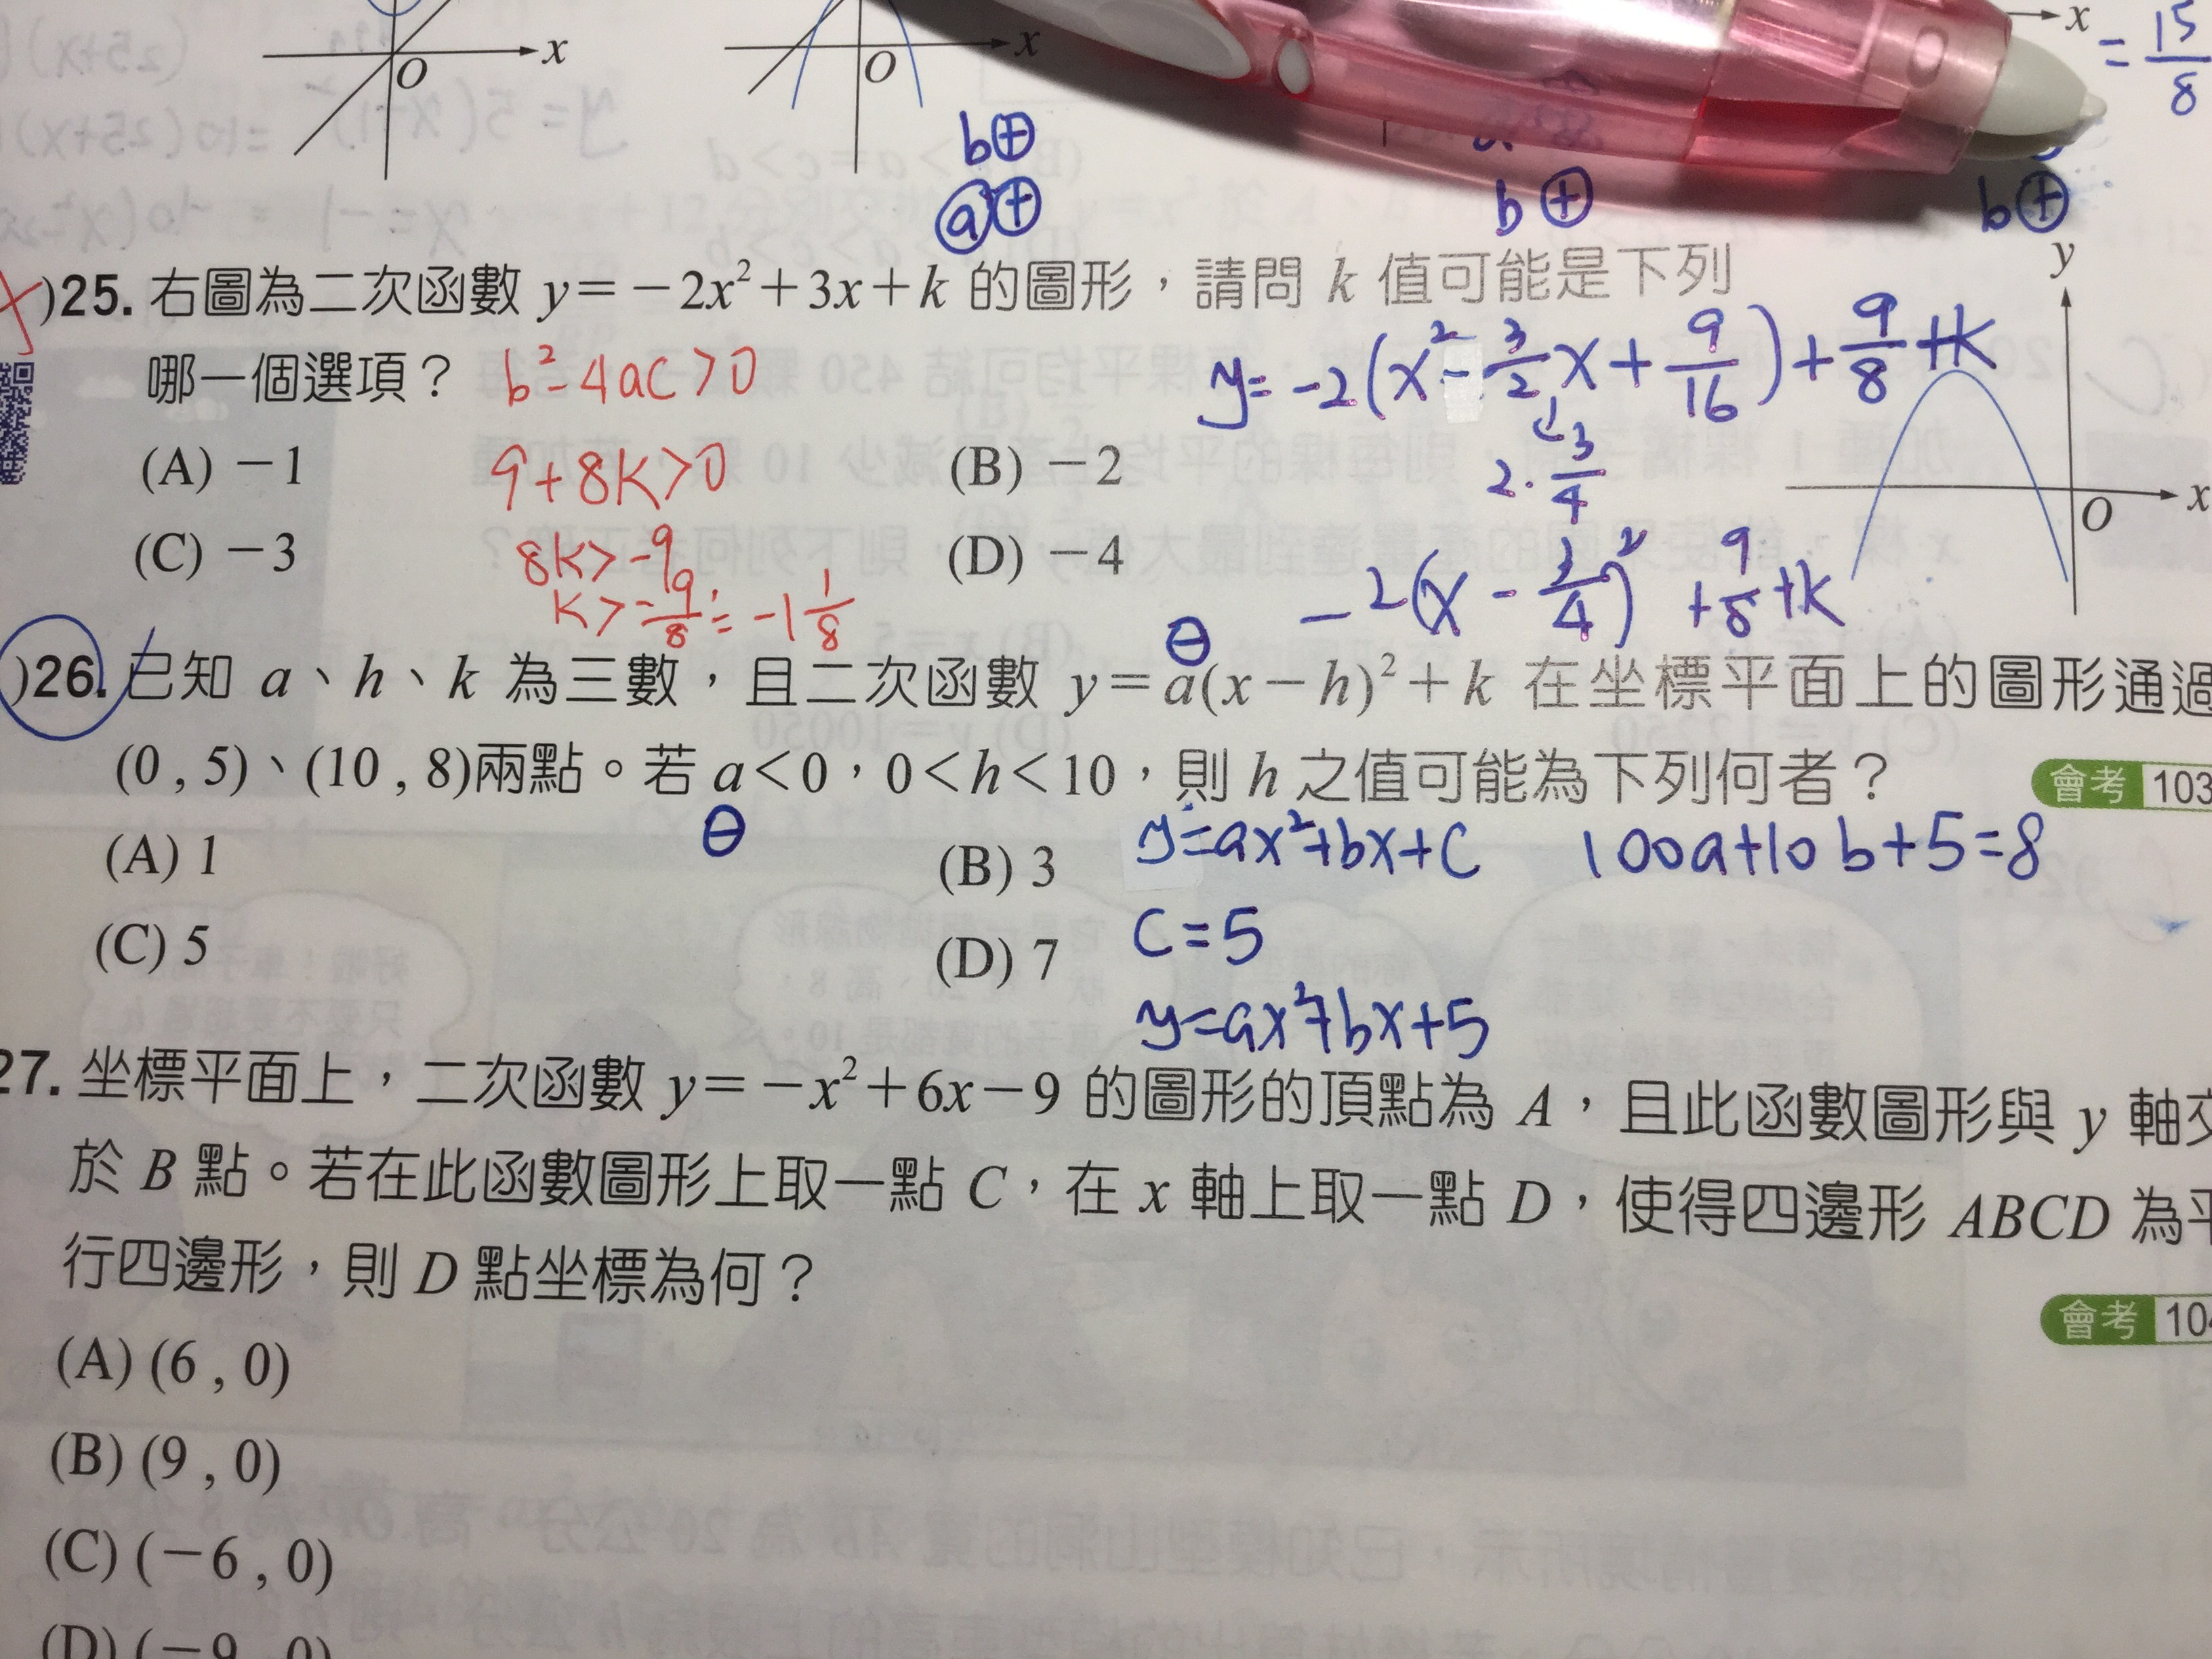 x
O
x
O
x
= 15/8
b⊕
a⊕
b⊕
b⊕
)25. 右圖為二次函數 y=-2x²+3x+k 的圖形,請問 k 值可能是下列
哪一個選項?
b²-4ac>0
y=-2(x²-3/2x+9/16)+9/8+k
2·3/4
y
x
O
(A) -1
9+8k>0
(B) -2
(C) -3
8k>-9
k>-9/8=-1 1/8
(D) -4
-2(x-3/4)²+9/8+k
⊖
)26. 已知 a、h、k 為三數,且二次函數 y=a(x-h)²+k 在坐標平面上的圖形通過
(0 , 5)、(10 , 8)兩點。若 a<0,0<h<10,則 h 之值可能為下列何者?
會考 103
⊖
(A) 1
(B) 3
y=ax²+bx+c
100a+10b+5=8
(C) 5
(D) 7
c=5
y=ax²+bx+5
27. 坐標平面上,二次函數 y=-x²+6x-9 的圖形的頂點為 A,且此函數圖形與 y 軸交
於 B 點。若在此函數圖形上取一點 C,在 x 軸上取一點 D,使得四邊形 ABCD 為平
行四邊形,則 D 點坐標為何?
會考 104
(A) (6 , 0)
(B) (9 , 0)
(C) (-6 , 0)
(D) (-9 , 0)